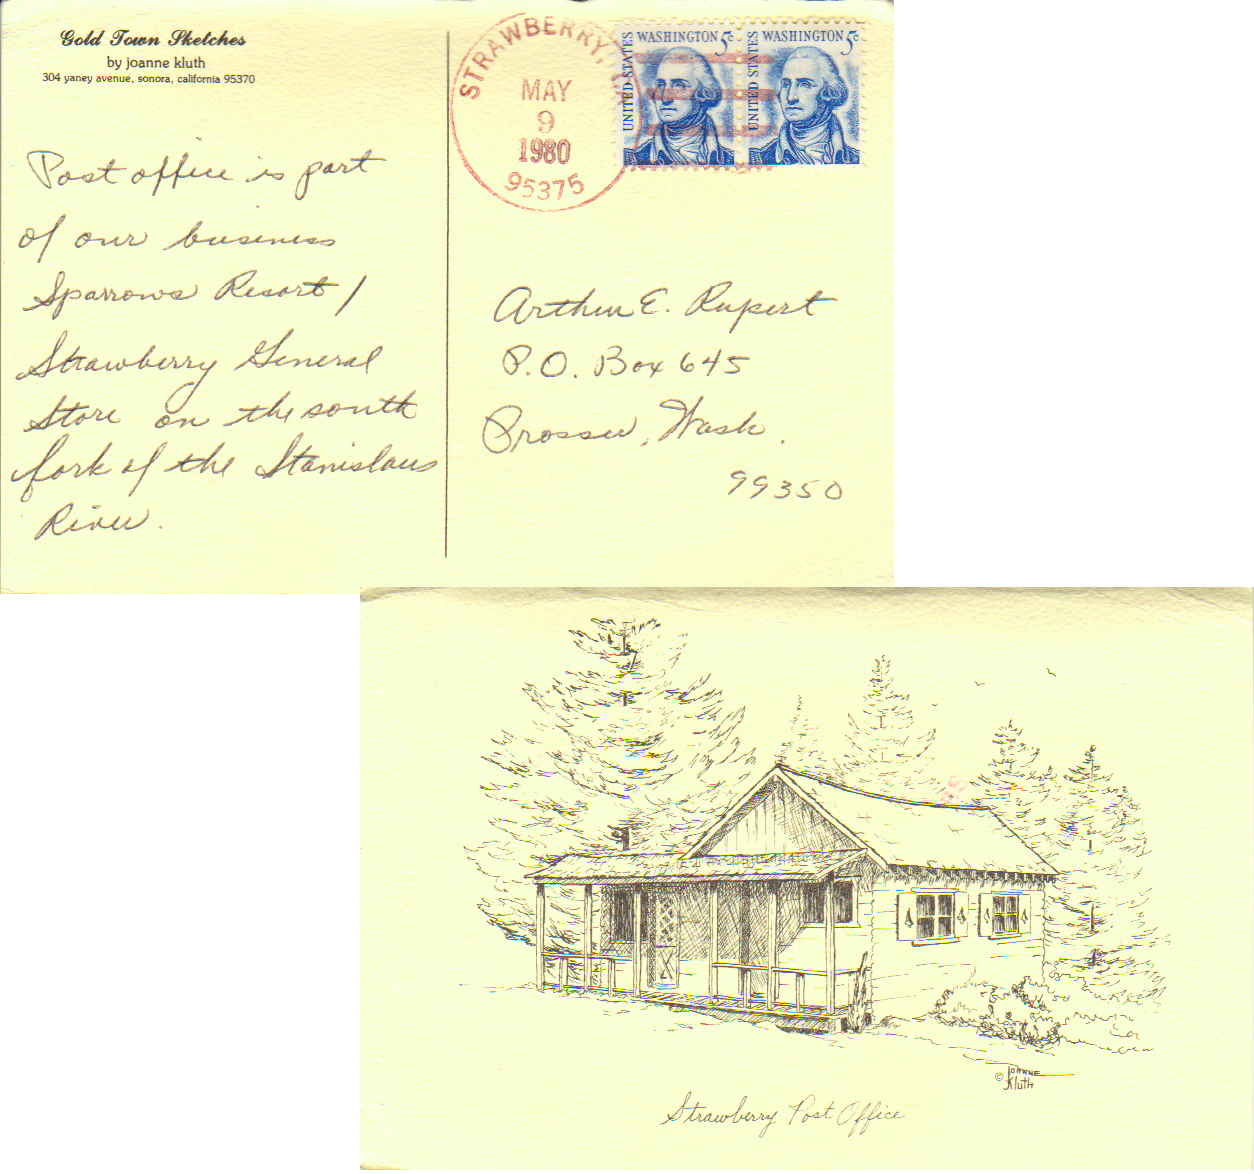 Gold Town Sketches
by joanne kluth
304 yaney avenue, sonora, california 95370
Post office is part
of our business
Sparrows Resort /
Strawberry General
Store on the south
fork of the Stanislaus
River.
STRAWBERRY,
MAY
9
1980
95375
UNITED STATES
WASHINGTON 5c
UNITED STATES
WASHINGTON 5c
Arthur E. Rupert
P.O. Box 645
Prosser, Wash.
99350
© JOANNE
Kluth
Strawberry Post Office